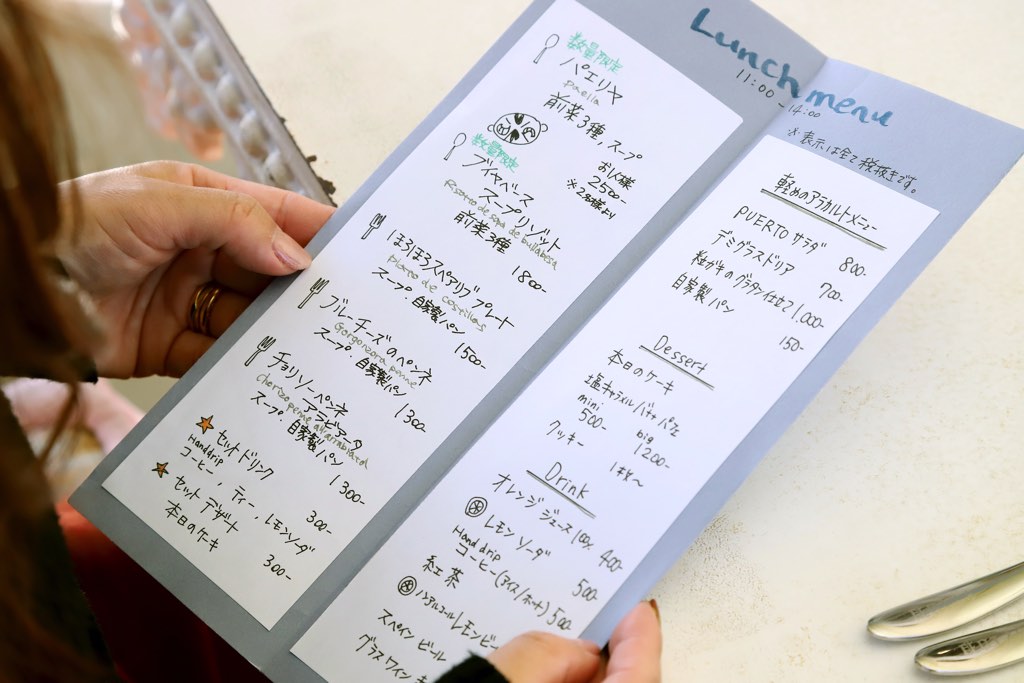 Lunch menu
11:00-14:00
※表示は全て税抜きです。
数量限定
パエリヤ
paella
前菜3種，スープ
お1人様
2500-
※2名様より
数量限定
ブイヤベース
スープリゾット
Risotto de sopa de bullabesa
前菜3種
1800-
ほろほろスペアリブプレート
plato de costillas
スープ・自家製パン
1500-
ブルーチーズのペンネ
Gorgonzora penne
スープ・自家製パン
1300-
チョリソーペンネ
アラビアータ
スープ・自家製パン
1300-
セットドリンク
Handdrip
コーヒー，ティー，レモンソーダ
300-
セットデザート
本日のケーキ
300-
軽めのアラカルトメニュー
PUERTOサラダ 800-
デミグラスドリア 700-
粒ガキのグラタン仕立て 1,000-
自家製パン 150-
Dessert
本日のケーキ
塩キャラメルバナナパフェ
mini big
500- 1200-
クッキー 1枚〜
Drink
オレンジジュース100% 400-
レモンソーダ 500-
Hand drip
コーヒー(アイス/ホット) 500-
紅茶
ノンアルコールレモンビー
スペインビール
グラスワイン